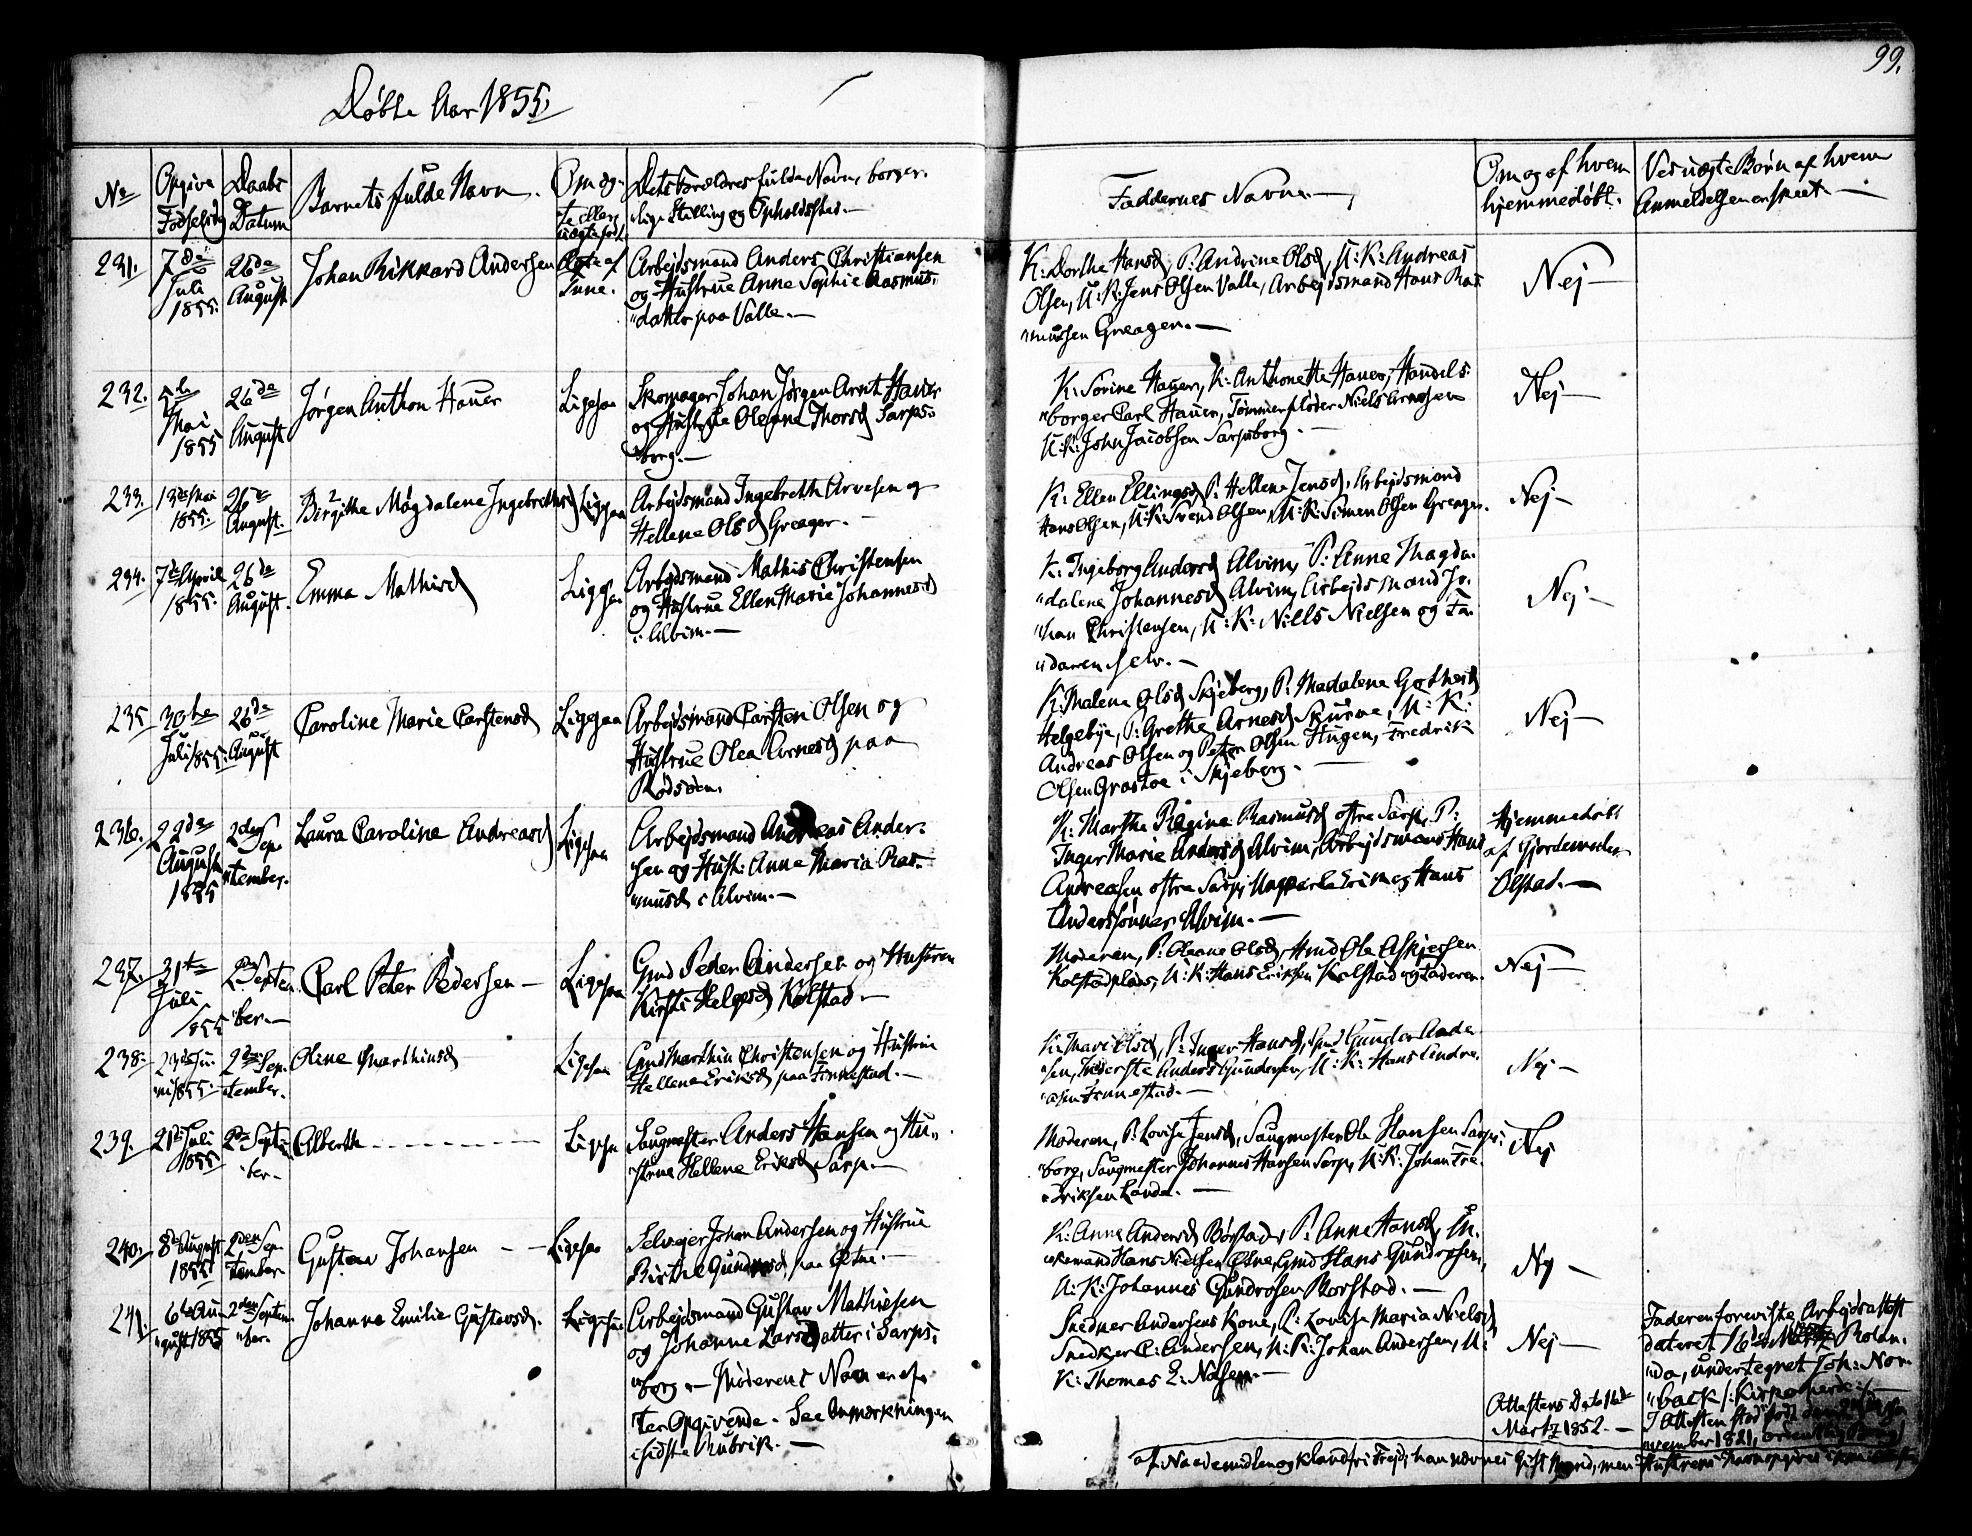 99.
Døbte Aar 1855.
No
Opgive Fødselsdag
Daabs Datum
Barnets fulde Navn.
Om ægte eller uægte født.
Dets Forældres fulde Navn, borgerlige Stilling og Opholdssted.
Faddernes Navne.
Om og af hvem hjemmedøbt.
Ved uægte Børn af hvem Anmeldelsen er skeet.
231.
7de Juli 1855.
26de August
Johan Rikkard Andersen
Arbejdsmand Anders Christiansen
og Hustrue Anne Sophie Rasmus-
"datter paa Valle.
K: Dorthe Hansd, P: Andrine Olsd, U: K: Andreas
Olsen, U: K: Jens Olsen Valle, Arbejdsmand Hans Ras
"mussen Greager.
Nej
232.
Mai 1855
26de August
Jørgen Anthon Hauer
Ligesaa
Skomager Johan Jørgen Arnt Hauer
og Hustrue Oleane Thorsd Sarps-
"borg.
K: Sorine Hauer, K: Anthonette Hauer, Handels-
"borger Carl Hauer, Tømmerfløder Niels Arnesen
U: K: John Jacobsen Sarpsborg.
Nej
233.
13de Mai 1855.
26de August.
Birgithe Magdalene Ingebrethsd
Ligesaa
Arbejdsmand Ingebreth Arvesen og
Hellene Olsd Greager.
K: Ellen Ellingsd, P: Hellene Jensd, Arbejdsmand
Hans Olsen, U: K: Svend Olsen, U: K: Simen Olsen Greager.
Nej
234.
7de April 1855.
26de August.
Emma Mathisd
Ligesaa
Arbejdsmand Mathis Christensen
og Hustrue Ellen Marie Johannesd
i Alvim.
K: Ingeborg Andersd Alvim, P: Anne Magda-
"dalene Johannesd Alvim, Arbejdsmand Jo-
"han Christensen, U: K: Niells Nielsen og Fa-
"daren selv.
Nej
235
30te Juli 1855.
26de August
Caroline Marie Carstensd
Ligesaa
Arbejdsmand Carsten Olsen og
Hustrue Olea Arnesd paa
Rødsøen.
K: Malene Olsd Skjeberg, P: Madalene
Helgebye, P: Grethe Arnesd Skurve, U: K:
Andreas Olsen og Peter Olsen Hugen, Fredrik
Olsen i Skjeberg.
Nej
236.
22de August 1855
2den Sep-
"tember.
Laura Caroline Andreasd
Ligesaa
Arbejdsmand Andreas Ander-
sen og Hust: Anne Maria Ras-
"musd i Alvim.
K: Marthe Regine Rasmusd østre Sarp, P:
Inger Marie Andersd Alvim, Arbejdsmand Hans
Andreasen østre Sarp, Ungkarle Erik og Hans
Anderssønner Alvim.
Hjemmedøbt
af Gjordemoder
Olstad.
237.
31te Juli 1855
2den Septem
"ber.
Carl Peter Pedersen
Ligesaa
Gmd Peter Andersen og Hustrue
Kirsti Helgesd Kolstad.
Moderen, P: Oleane Olsd, Hmd Ole Askjersen
Kolstadplads, U: K: Hans Eriksen Kolstad og Faderen.
Nej
238.
23de Ju-
ni 1855.
2den Sep-
tember.
Oline Marthinsd
Ligesaa
Gmd Marthin Christensen og Hustrue
Hellene Eriksd paa Finnestad.
K: Mari Olsd, P: Inger Hansd, Gmd Gunder Ander-
"sen, Inderste Anders Gundersen, U: K: Hans Andre-
"asen Finnestad.
Nej
239.
21de Juli 1855
2den Septem-
"ber.
Alberth
Ligesaa
Saugmester Anders Hansen og Hu-
"strue Hellene Eriksd Sarp.
Moderen, P: Lovise Jensd, Saugmester Ole Hansen Sarps-
"borg, Saugmester Johannes Hansen Sarp, U: K: Johan Fre-
"driksen Lande.
Nej
240.
8de August 1855
2den Sep-
tember
Gustav Johansen
Ligesaa
Selvejer Johan Andersen og Hustrue
Birthe Gundersd paa
K: Anne Andersd Børstad, P: Anne Hansd,
Hans Nielsen, Gmd Hans Gundersen,
U: K: Johannes Gundersen Borstad.
Nej
241.
6te Au-
"gust 1855
2den Septem-
"ber.
Johanne Emilie Gustavsd.
Ligesaa
Arbejdsmand Gustav Mathisen
og Johanne Larsdatter i Sarps-
"borg. Moderens Navn er ef-
ter Opgivende. See Anmærkningen
i sidste Rubrik.
Snedker Andersens Kone, P: Lovise Maria Nielsd,
Snedker C: Andersen, U: K: Johan Andersen, U:
K: Thomas E: Nilsen.
Nej
Attestens Dato 16de
Martz 1852.
Faderen foreviste Arbejdsattest
dateret 16de Martz
undertegnet Joh: Nor-
"back